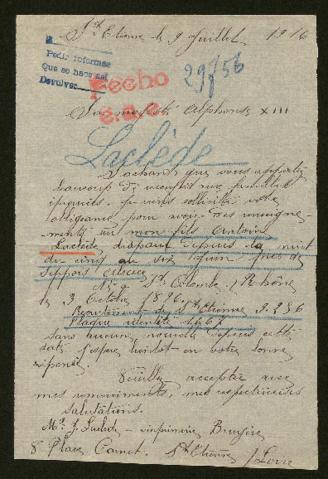 St Etienne le 9 Juillet 1916
Pedir informes
Que se hace así
Devolver
Fecho
29756
Sa majesté Alphonse XIII
Laclède
Sachant que vous apportez
beaucoup de réconfort aux familles
je viens solliciter votre
pour avoir des renseigne-
ments sur mon fils Antoine
Laclède, disparu depuis la nuit
du cinq au six Juin près de
Né à Ste Colombe /Rhône
le 3 Octobre 1896.
Recrutement de St Etienne
Plaque identité
sans aucune nouvelle depuis cette
date. J'espère bientôt en votre bonne
réponse.
Veuillez accepter avec
mes remerciements, mes respectueuses
salutations.
Mr J. Laclède - imprimerie
8 Place Carnot. St Etienne /Loire